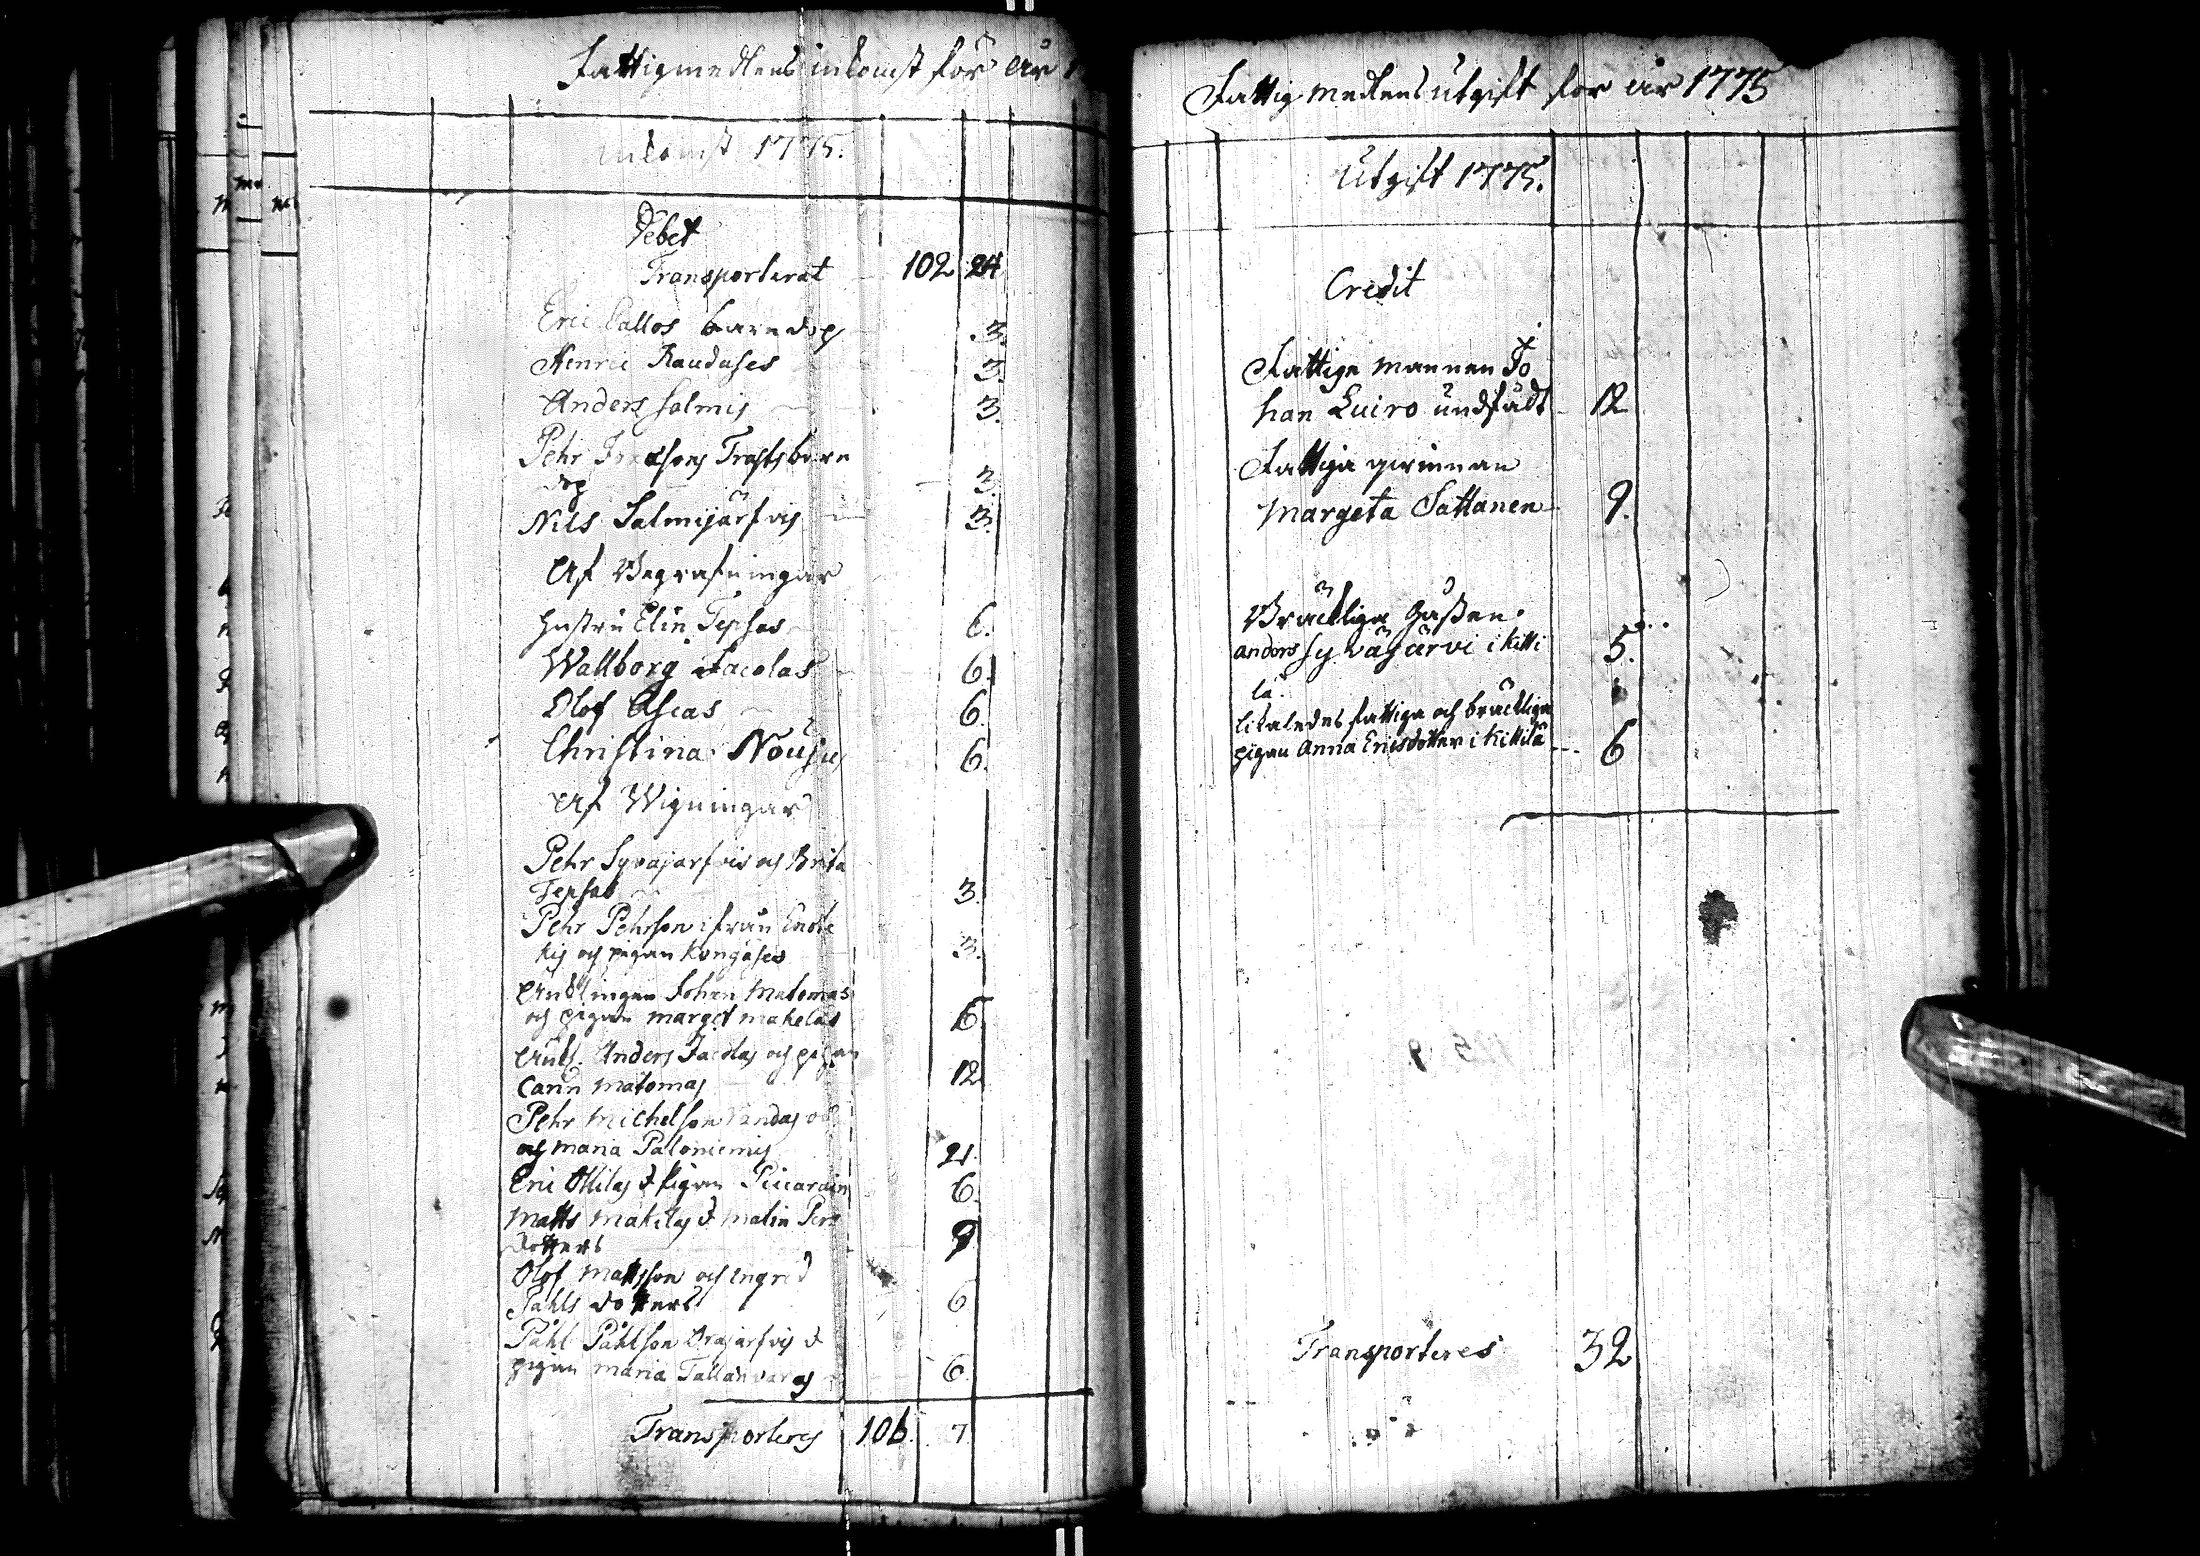 Fattigmedlens inkomst för år 1
inkomst 1775.
Debet
Transporterat 102 24
Eric Callos barndop 3.
Henric Raudases 3.
Anders Salmis 3.
Pehr Trasts barn
dop 3.
Nils Salmijärfvis 3.
Af Begrafningar
Hustru Elin Tepsas 6.
Wallborg Jacolas 6.
Olof Ascas 6.
Christina Nousus 6.
Af Wigningar
Pehr Syvajarfvis och Brita
Tepsas 3.
Pehr Pehrson ifrån Enote
kis och pigan Kongäses 3.
Änklingen Johan Matomas
och pigan marget makelas 6.
Änkl. Anders Jacolas och pigan
Carin matomas 12
Pehr Michelson
och maria Paloniemis 21.
Eric Ollilas & Pigan 6.
Matts makelas & malin Pers
dotters 9
Olof Mattsson och Ingred
Påhls dotters 6
Påhl Påhlson Orajarfvis &
pigan maria Tallavaras 6.
Transporteres 106. 7
Fattig medlens utgift for år 1775
Utgift 1775.
Credit
Fattige mannen Jo
han Luiro undfådt 12
Fattiga qvinnan
Margeta Sattanen 9.
Bräcklige Gaßen
anders syväjärvi i kitti 5.
lä.
likaledes fattiga och bräckliga
pigan Anna Ericsdotter i Kittilä 6
Transporteres 32